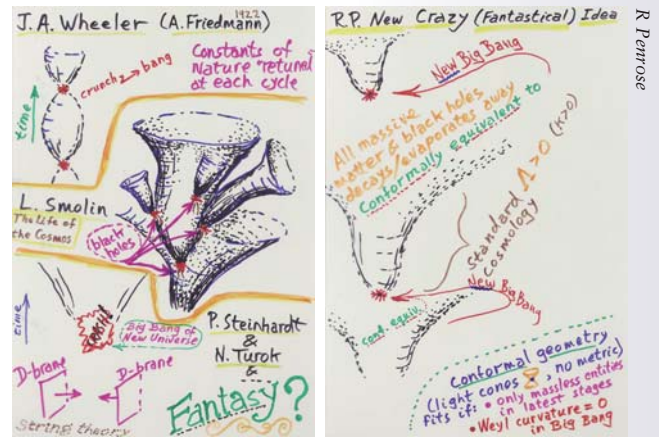 J.A. Wheeler (A. Friedmann)
1922
Constants of
Nature "retuned"
at each cycle
crunch → bang
time
L. Smolin
The Life of
the Cosmos
black
holes
time
Big Bang of
New Universe
P. Steinhardt
&
N. Turok
&
D-brane
D-brane
String theory
Fantasy?
R.P. New Crazy (Fantastical) Idea
New Big Bang
All massive
matter & black holes
decays/evaporates away
Conformally equivalent to
Λ > 0 (K>0)
Standard
Cosmology
New Big Bang
conf. equiv.
conformal geometry
(light cones, no metric)
fits if: • only massless entities
in latest stages
• Weyl curvature = 0
in Big Bang
R Penrose